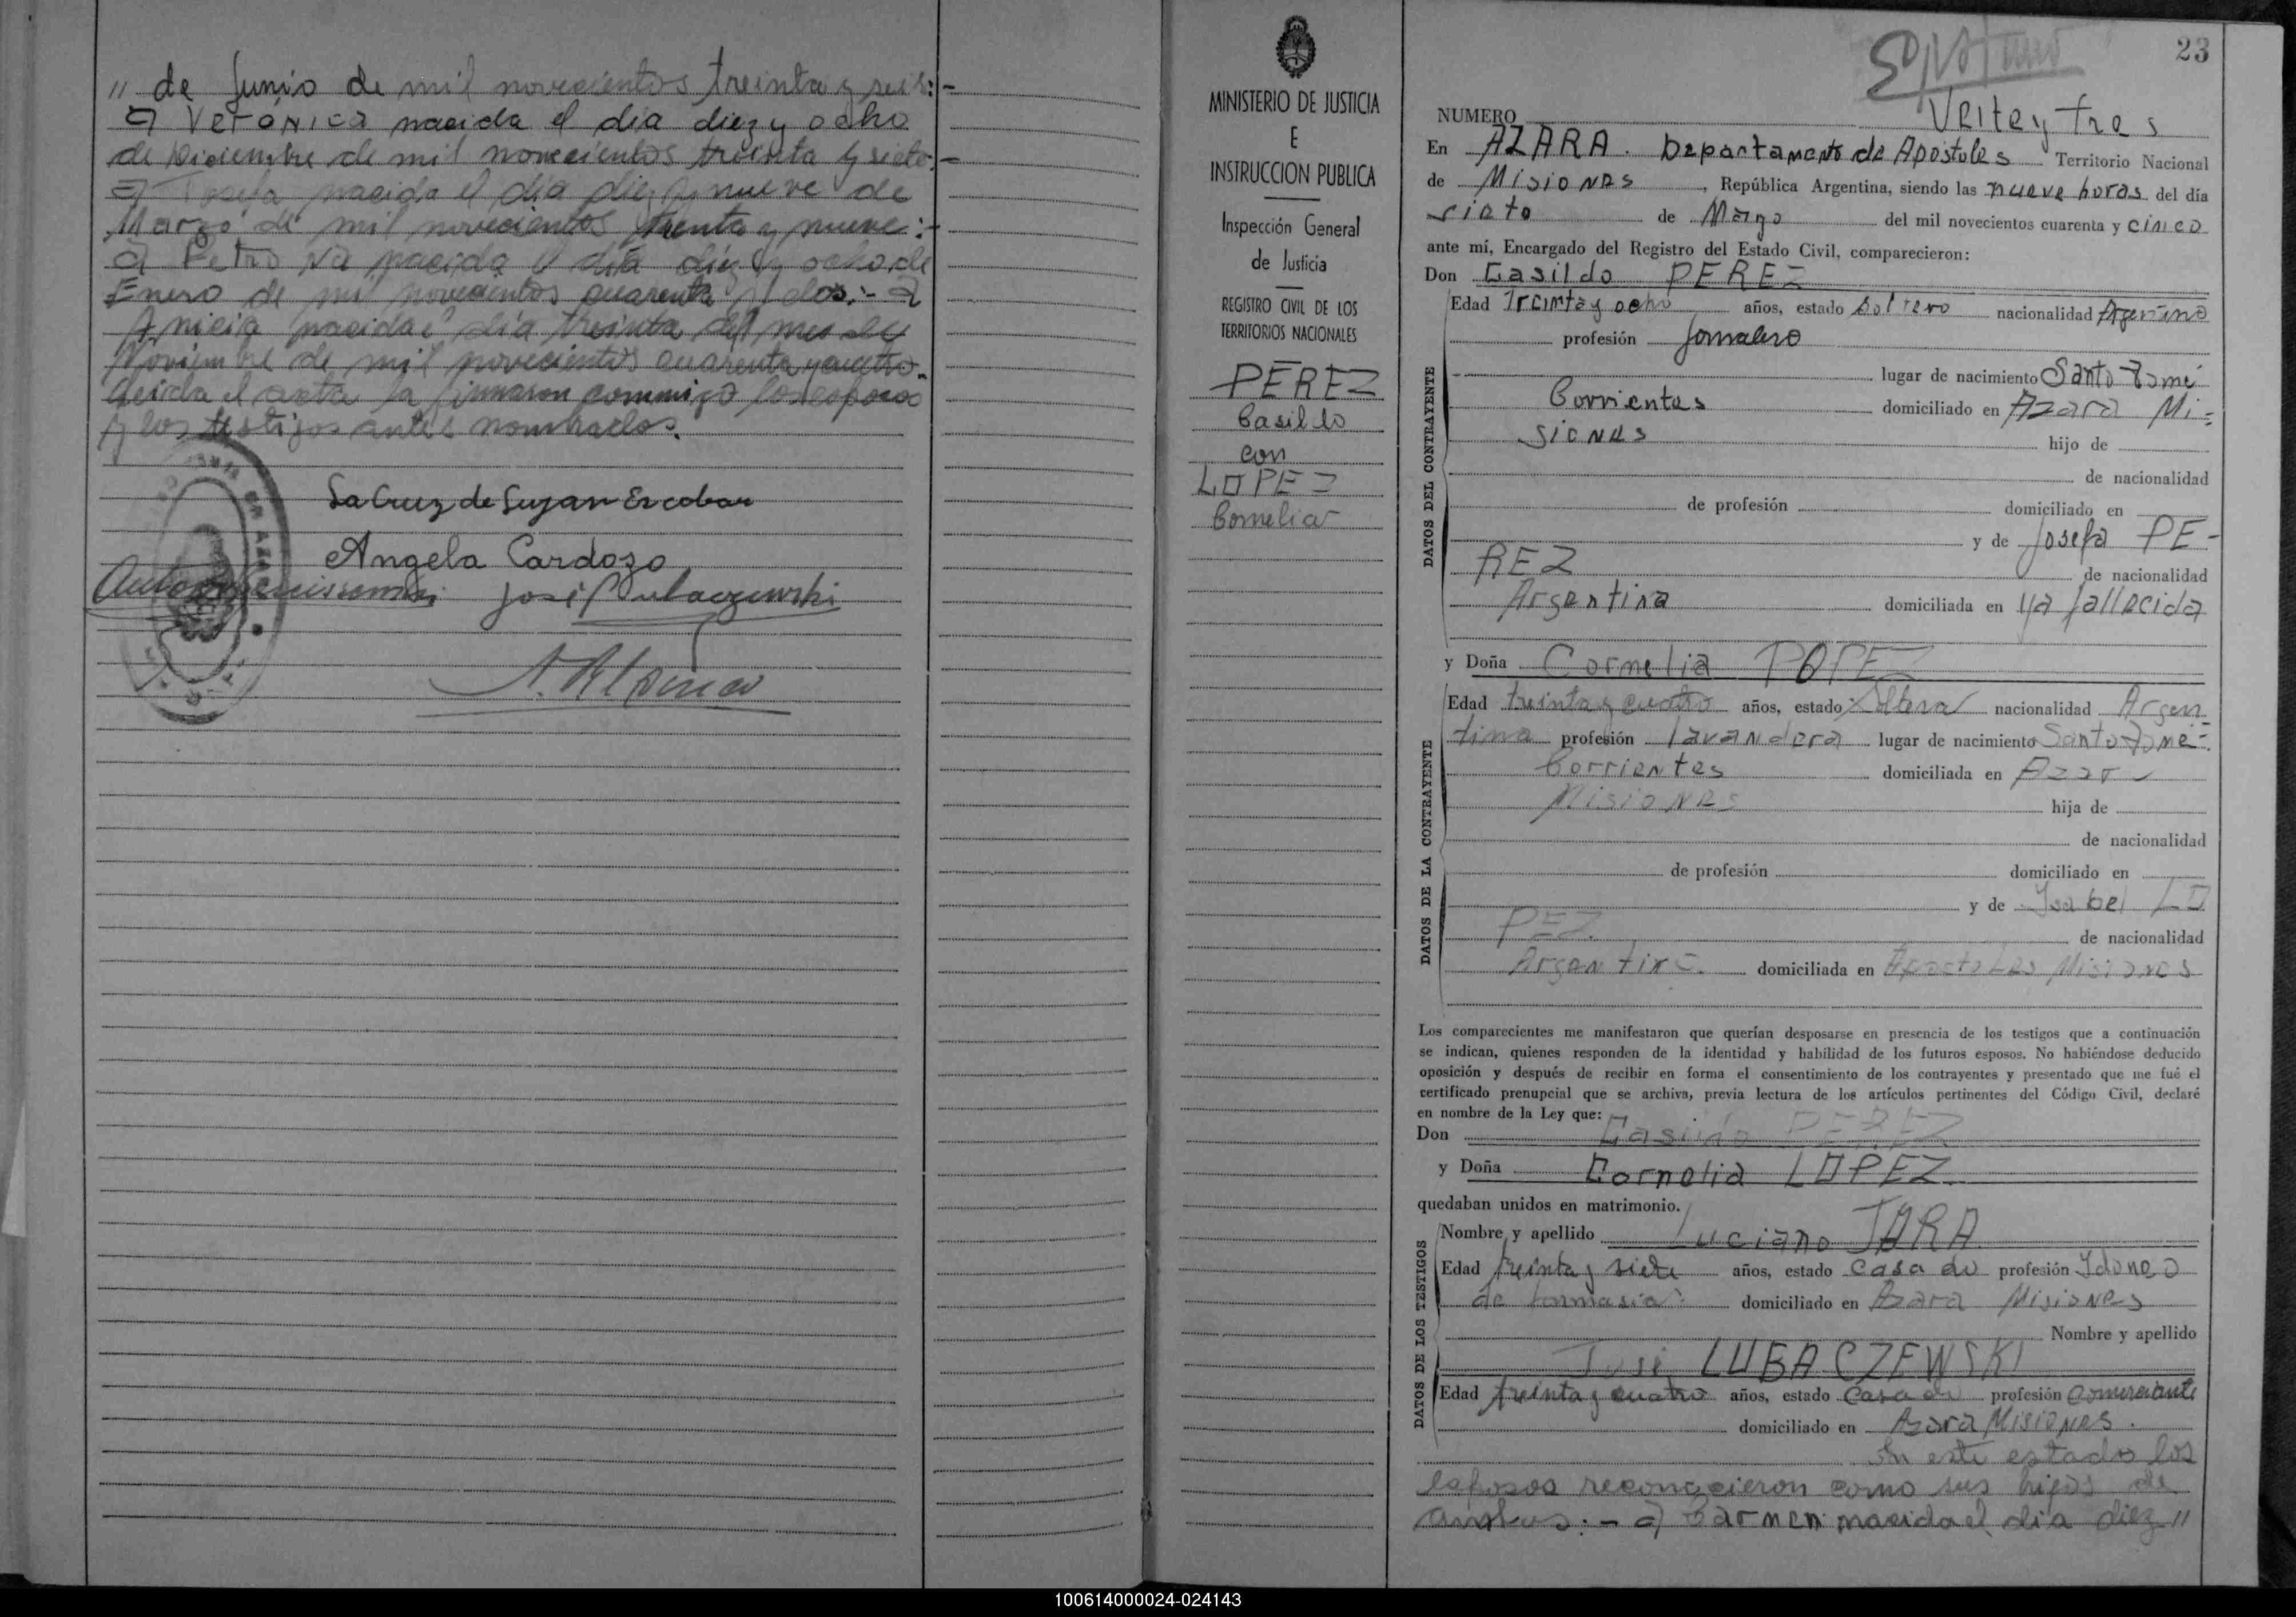 " de Junio de mil novecientos treinta y seis:-
a Verónica nacida el día diez y ocho
de Diciembre de mil novecientos treinta y siete:-
a Josefa nacida el día diez y nueve de
Marzo de mil novecientos treinta y nueve:-
a Petrona nacida el día diez y ocho de
Enero de mil novecientos cuarenta y dos:- a
Anicia nacida el día treinta del mes de
Noviembre de mil novecientos cuarenta y cuatro.
Leida el acta la firmaron conmigo los esposos
y los testigos antes nombrados.
La Cruz de Lujan Escobar
Angela Cardozo
José Lubaczewski
MINISTERIO DE JUSTICIA
E
INSTRUCCION PUBLICA
Inspección General
de Justicia
REGISTRO CIVIL DE LOS
TERRITORIOS NACIONALES
PÉREZ
Casildo
con
LOPEZ
Cornelia
23
NUMERO Veite y tres
En AZARA. Departamento de Apóstoles Territorio Nacional
de Misiones, República Argentina, siendo las nueve horas del día
siete de Marzo del mil novecientos cuarenta y cinco
ante mí, Encargado del Registro del Estado Civil, comparecieron:
Don Casildo PEREZ
Edad Treinta y ocho años, estado soltero nacionalidad Argentino
profesión Jornalero
lugar de nacimiento Santo Tomé
Corrientes domiciliado en Azara Mi-
siones hijo de
de nacionalidad
de profesión domiciliado en
y de Josefa PE-
REZ de nacionalidad
Argentina domiciliada en ya fallecida
y Doña Cornelia POPEZ
Edad treinta y cuatro años, estado Soltera nacionalidad Argen-
tina profesión lavandera lugar de nacimiento Santo Tomé-
Corrientes domiciliada en Azara
Misiones hija de
de nacionalidad
de profesión domiciliado en
y de Ysabel LO
PEZ. de nacionalidad
Argentina. domiciliada en Apostoles Misiones
Los comparecientes me manifestaron que querían desposarse en presencia de los testigos que a continuación
se indican, quienes responden de la identidad y habilidad de los futuros esposos. No habiéndose deducido
oposición y después de recibir en forma el consentimiento de los contrayentes y presentado que me fué el
certificado prenupcial que se archiva, previa lectura de los artículos pertinentes del Código Civil, declaré
en nombre de la Ley que:
Don Casildo PEREZ
y Doña Cornelia LOPEZ.
quedaban unidos en matrimonio.
Nombre y apellido Luciano JARA
Edad treinta y siete años, estado casado profesión Ydoneo
de farmasia. domiciliado en Azara Misiones
Nombre y apellido
José LUBACZEWSKI
Edad treinta y cuatro años, estado Casado profesión comerciante
domiciliado en Azara Misiones.
En este estado los
esposos reconocieron como sus hijos de
ambos:- a) Carmen nacida el día diez "
DATOS DEL CONTRAYENTE
DATOS DE LA CONTRAYENTE
DATOS DE LOS TESTIGOS
100614000024-024143